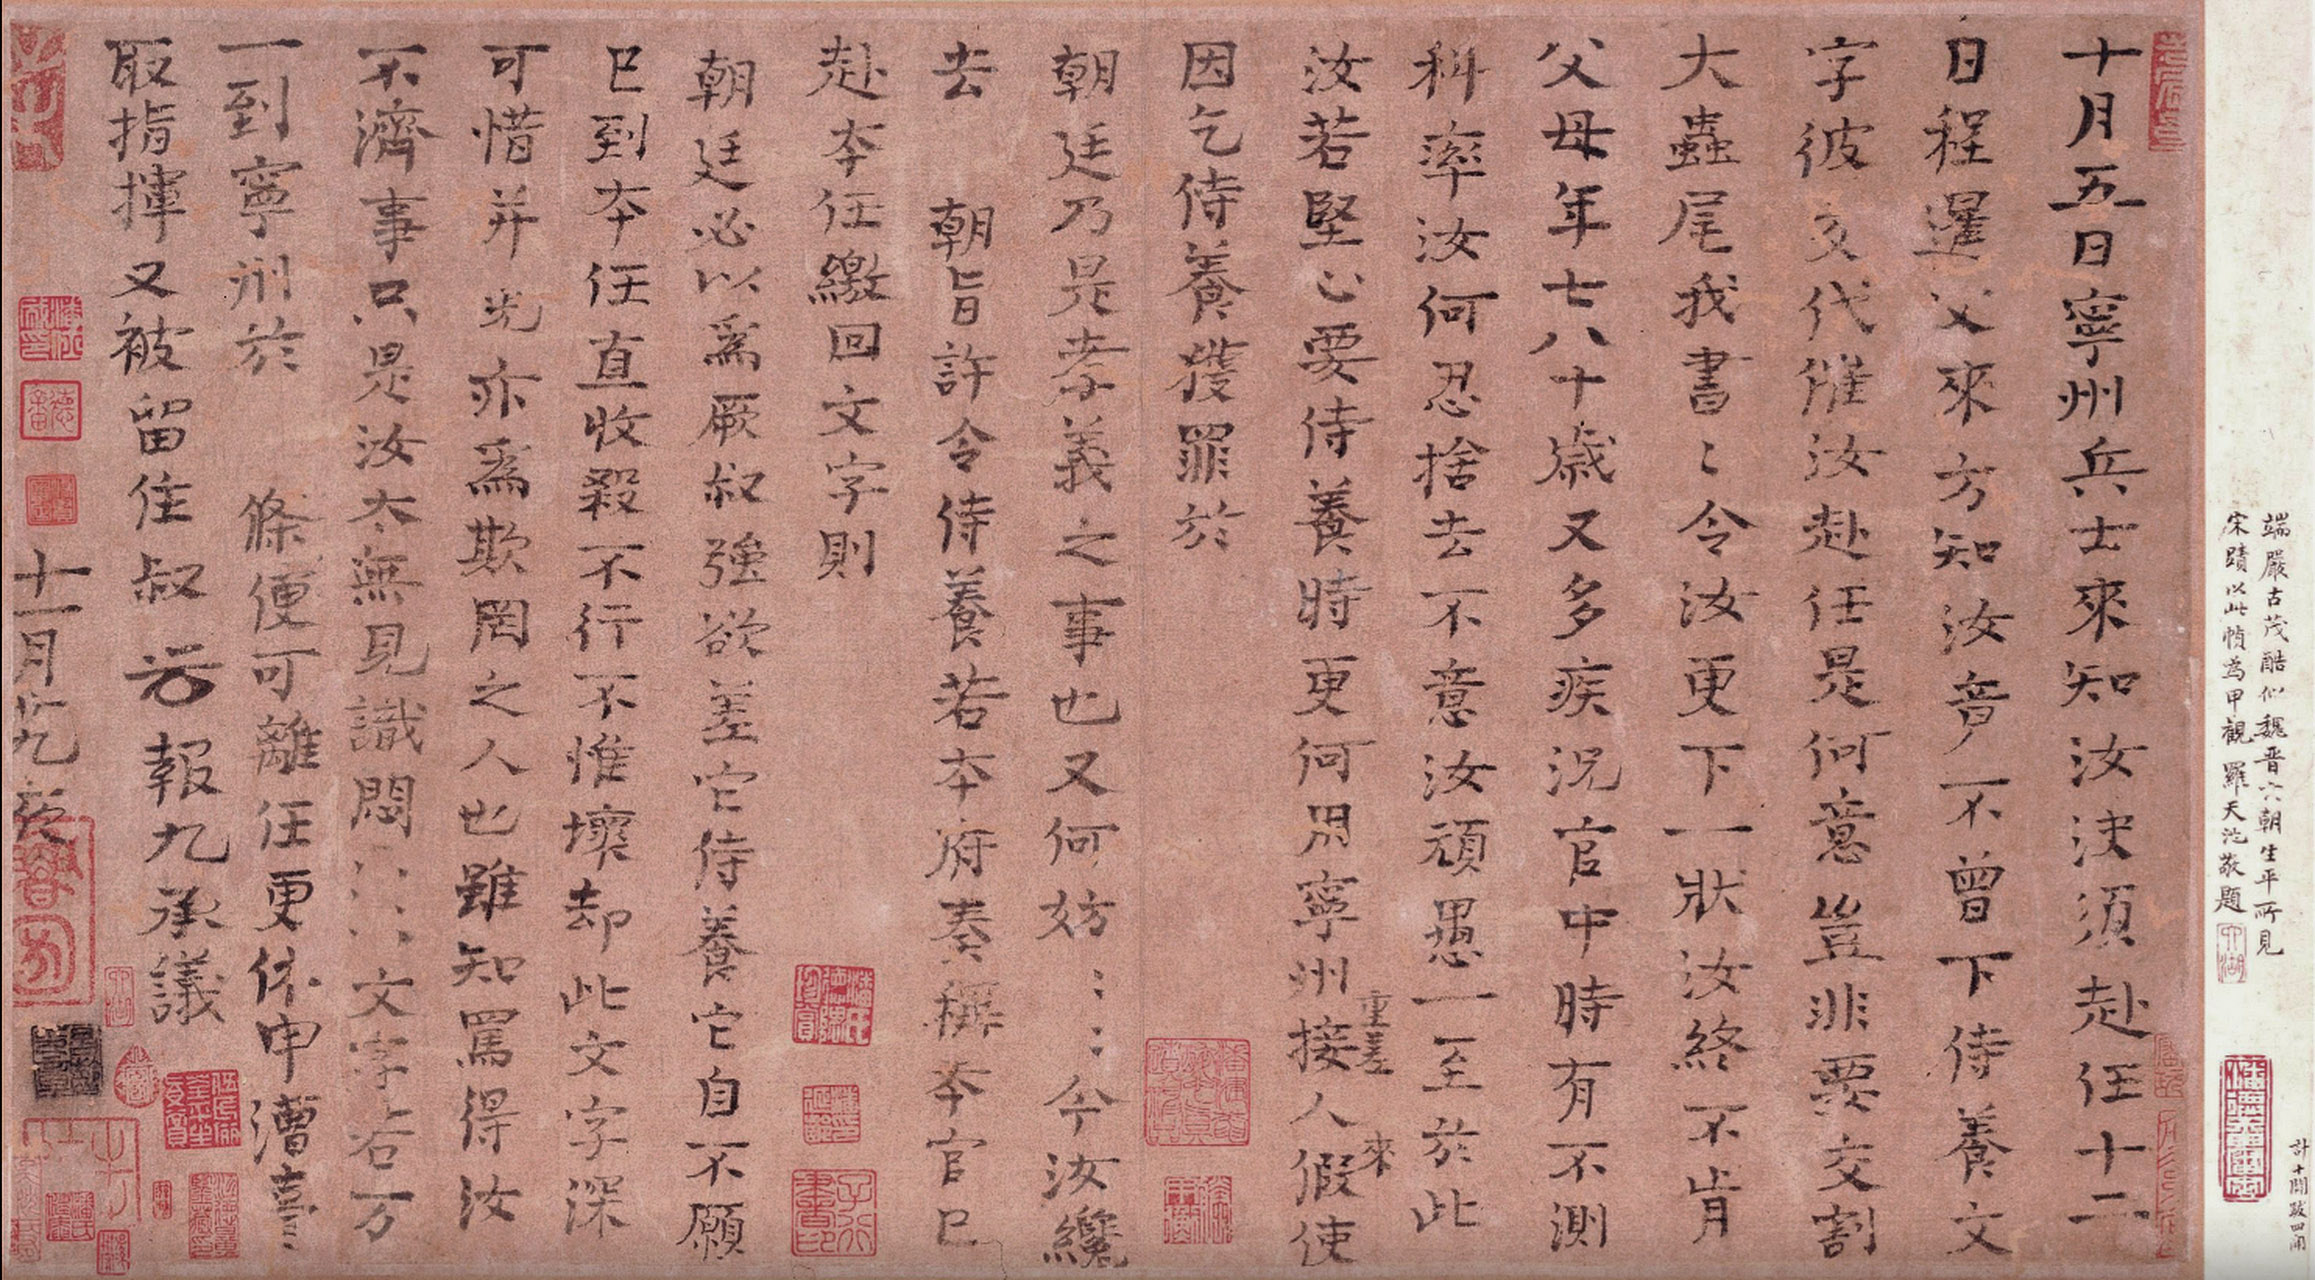 十月五日寧州兵士來知汝決須赴任十二
日程暹父來方知汝音不曾下侍養文
字彼交代催汝赴任是何意豈非要交割
大蟲尾我書〻令汝更下一狀汝終不肯
父母年七八十歲又多疾況官中時有不測
科率汝何忍捨去不意汝頑愚一至於此
汝若堅心要侍養時更何用寧州接人假使
重差
來
因乞侍養獲罪於
朝廷乃是孝義之事也又何妨〻〻今汝纔
去 朝旨許令侍養若本府奏稱本官已
赴本任繳回文字則
朝廷必以爲厥叔強欲差它侍養它自不願
已到本任直收殺不行不惟壞却此文字深
可惜并光亦爲欺罔之人也雖知罵得汝
不濟事只是汝太無見識悶〻〻〻文字右万
一到寧州於 條便可離任更依申漕臺
取指揮又被留住叔 報九承議
十一月九夜
端嚴古茂酷似魏晉六朝生平所見
宋蹟以此幀為甲觀 羅天池敬題